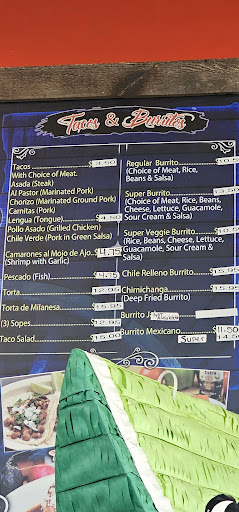 Tacos & Burritos
Tacos 3.50
With Choice of Meat.
Asada (Steak)
Al Pastor (Marinated Pork)
Chorizo (Marinated Ground Pork)
Carnitas (Pork)
Lengua (Tongue) 4.50
Pollo Asado (Grilled Chicken)
Chile Verde (Pork in Green Salsa)
Camarones al Mojo de Ajo 4.75
(Shrimp with Garlic)
Pescado (Fish) 4.75
Torta 12.95
Torta de Milanesa 15.95
(3) Sopes 12.95
Taco Salad 15.95
Regular Burrito
(Choice of Meat, Rice,
Beans & Salsa)
Super Burrito
(Choice of Meat, Rice, Beans,
Cheese, Lettuce, Guacamole,
Sour Cream & Salsa)
Super Veggie Burrito
(Rice, Beans, Cheese, Lettuce,
Guacamole, Sour Cream &
Salsa)
Chile Relleno Burrito
Chimichanga
(Deep Fried Burrito)
Burrito
Burrito Mexicano 11.50
Super